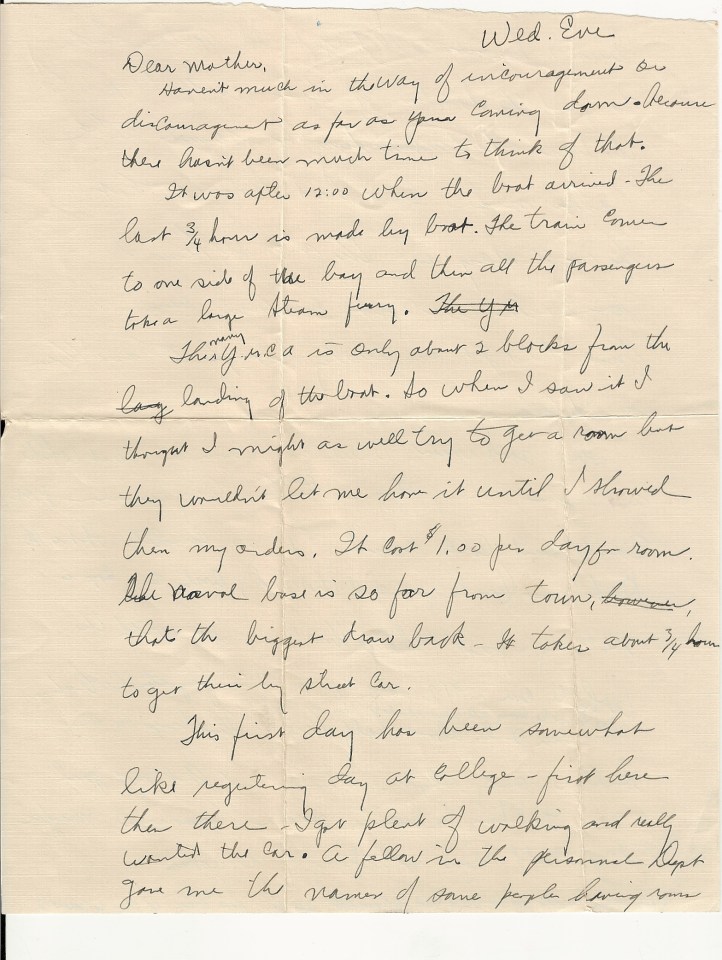 Wed. Eve
Dear Mother,
Haven't much in the way of incouragement or
discouragement as far as your coming down - because
there hasn't been much time to think of that.
It was after 12:00 when the boat arrived - The
last 3/4 hour is made by boat. The train comes
to one side of the bay and then all the passengers
take a large steam ferry. The Y M
The navy Y.M.C.A is only about 2 blocks from the
landing of the boat. So when I saw it I
thought I might as well try to get a room but
they wouldn't let me have it until I showed
them my orders. It cost $1.00 per day for room.
The naval base is so far from town, however,
that's the biggest draw back - It takes about 3/4 hour
to get there by street car.
This first day has been somewhat
like registering day at College - first here
then there - I got plent of walking and really
wanted the car. A fellow in the personnal Dept
gave me the names of some people having room